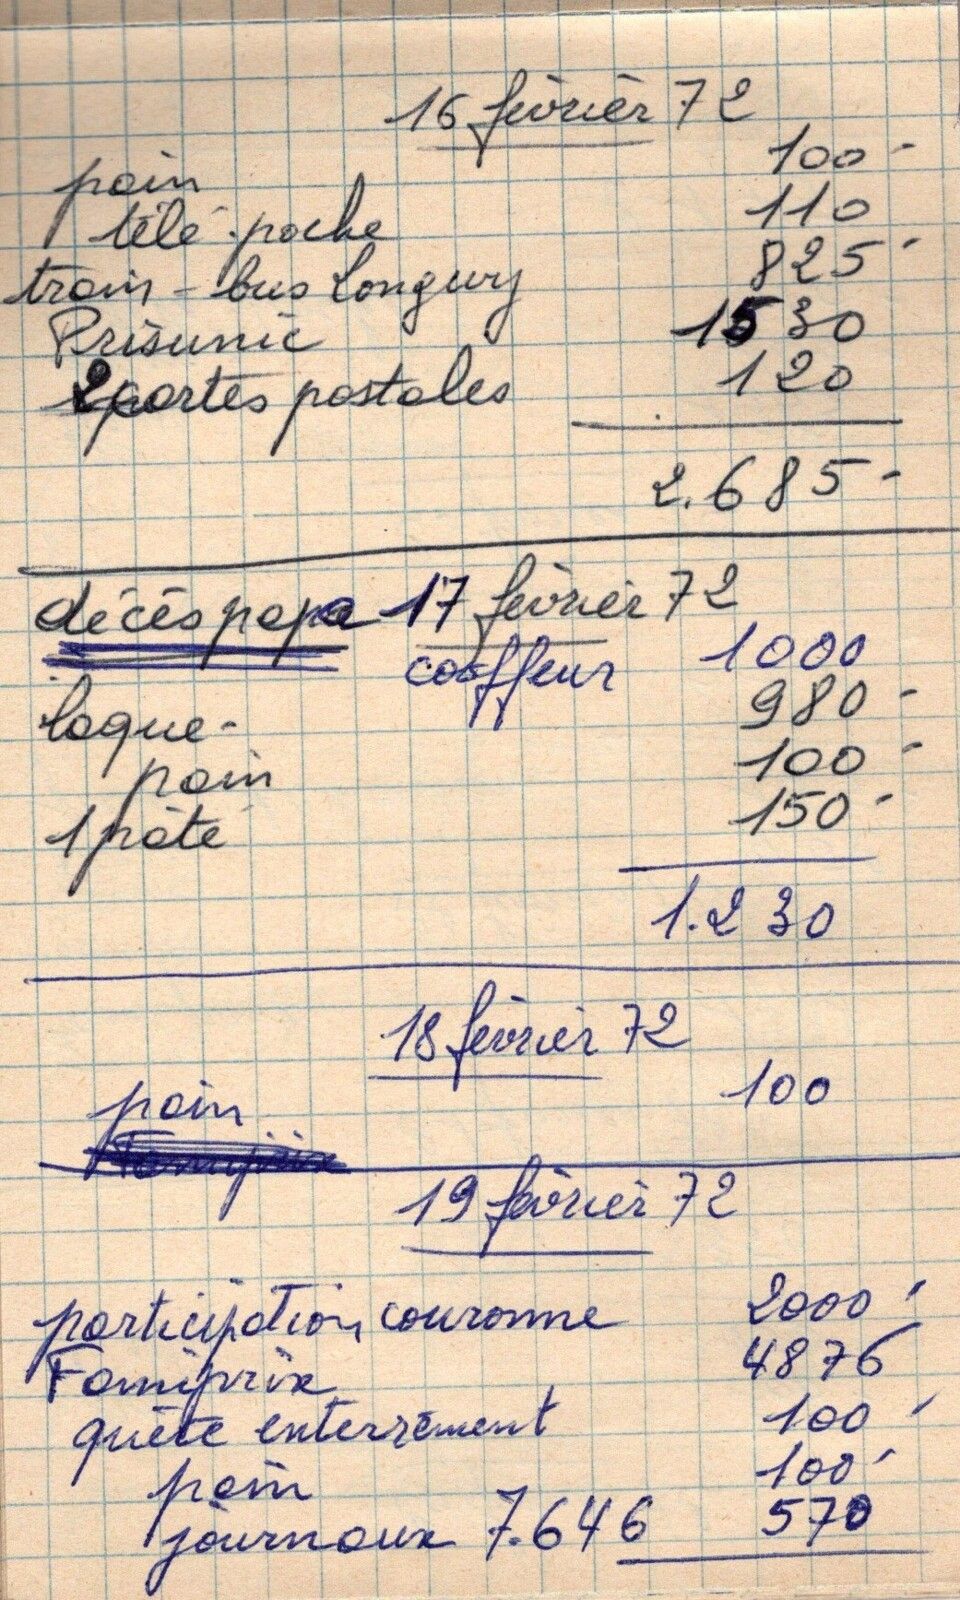 16 février 72
pain 100-
télé-poche 110
train - bus Longwy 825-
Prisunic 1530
2 cartes postales 120
2.685-
décès papa 17 février 72
coiffeur 1000
laque- 980-
pain 100-
1 pâté 150-
1.230
18 février 72
pain 100
Famiprix
19 février 72
participation couronne 2000-
Famiprix 4876
quête enterrement 100-
pain 100-
journaux 7.646 570